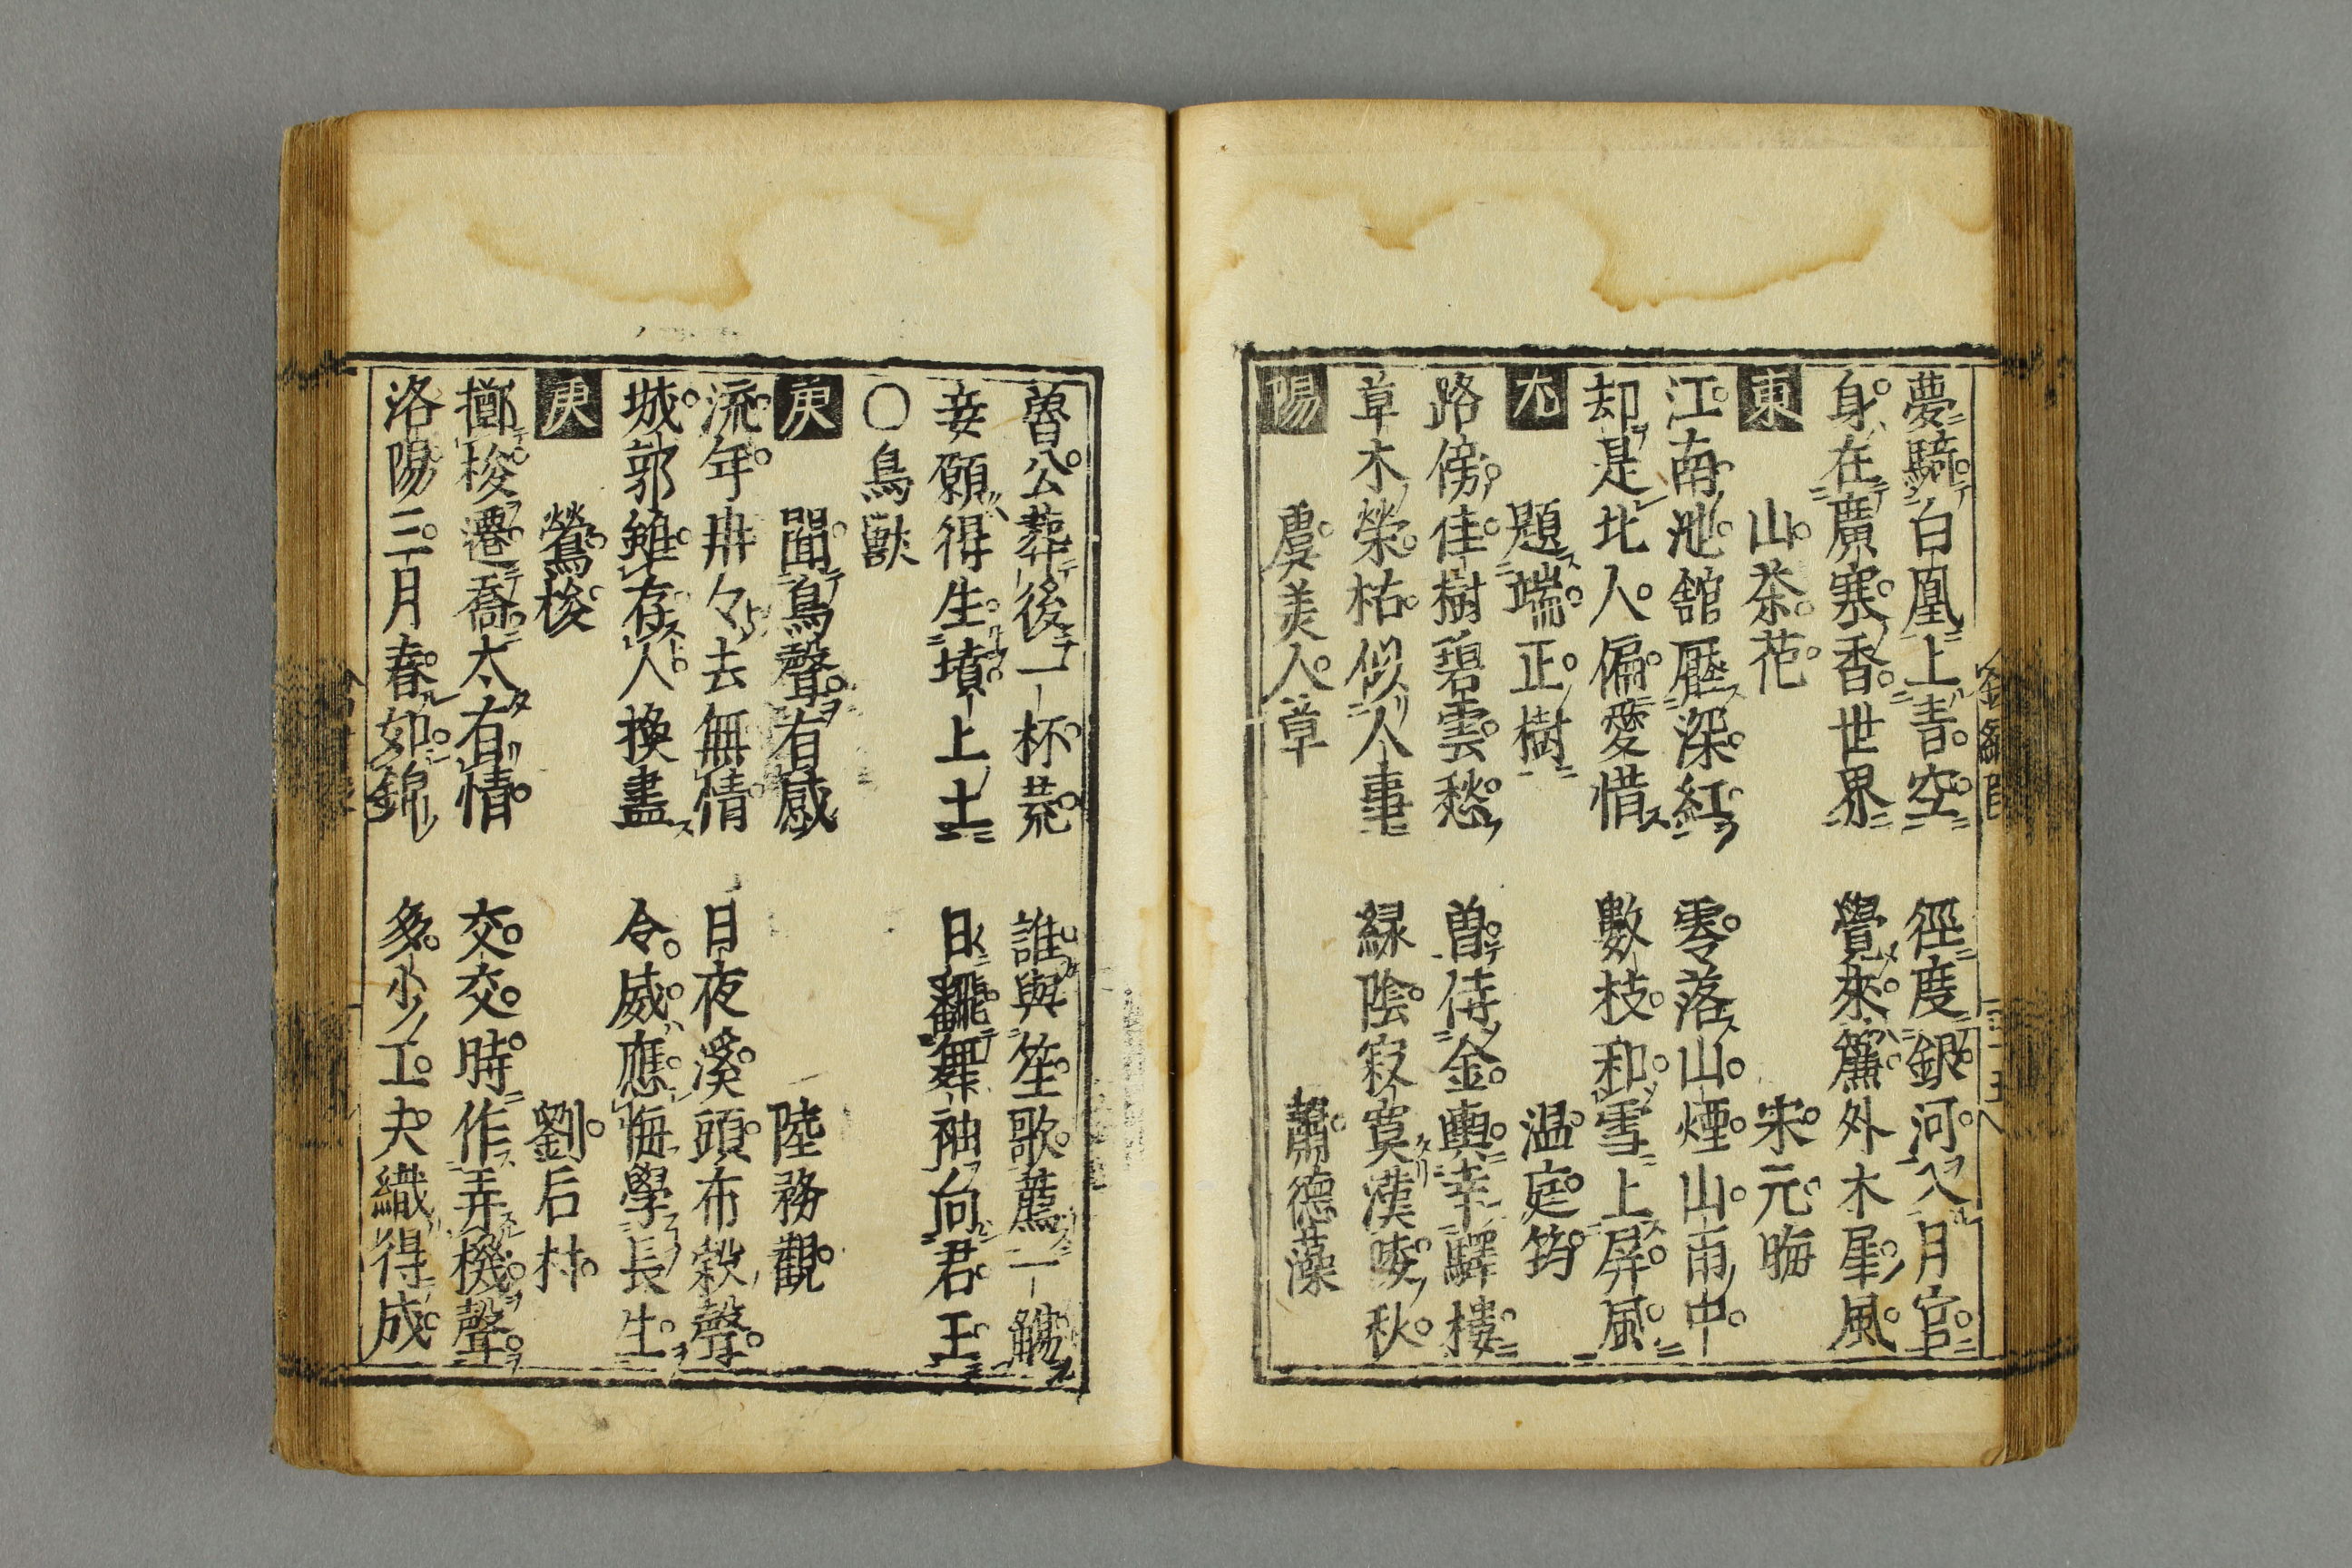 夢騎白凰上青空　徑度銀河入月宮
身在廣寒香世界　覺來簾外木犀風
東　山茶花　宋元晦
江南池舘厭深紅　零落山煙山雨中
却是北人偏愛惜　數枝和雪上屏風
尤　題端正樹　温庭筠
路傍佳樹碧雲愁　曽侍金輿幸驛樓
草木榮枯似人事　緑陰寂寞漢陵秋
陽　虞美人草　蕭德藻
魯公葬後一杯荒　誰與笙歌薦一觴
妾願得生墳上土　日翻舞袖向君王
〇鳥獸
庚　聞鳥聲有感　陸務觀
流年冉々去無情　日夜溪頭布穀聲
城郭雖存人換盡　令威應悔學長生
庚　鶯梭　劉后村
擲梭遷喬太有情　交交時作弄機聲
洛陽三月春如錦　多少工夫織得成